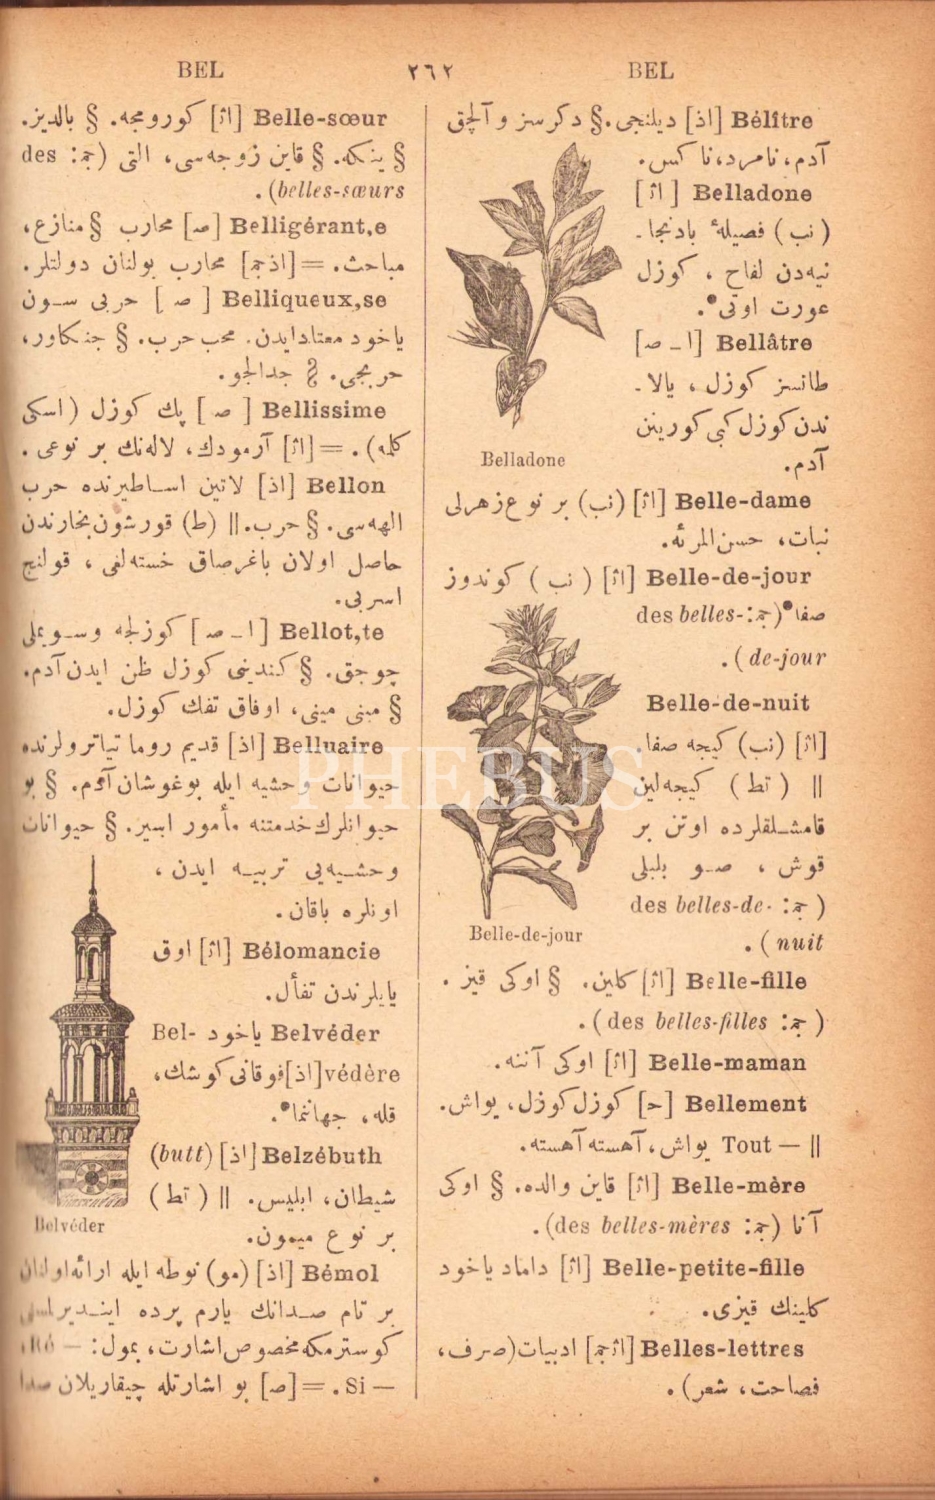 BEL ٢٦٢ BEL
Bélître [اذ] ديلنجى. § دكرسز و آلچق
آدم، نامرد، ناكس.
Belladone [اث]
(نب) فصيلهٔ بادنجا-
نيه‌دن لفاح ، كوزل
عورت اوتى.
Bellâtre [ا - ص]
طاتسز كوزل ، يالا-
ندن كوزل كبى كورينن
آدم.
Belladone
Belle-dame [اث] (نب) بر نوع زهرلى
نبات، حسن المرئه.
Belle-de-jour [اث] (نب) كوندوز
صفا (جم: des belles-
de-jour).
Belle-de-nuit
[اث] (نب) كيجه صفا
|| (تط) كيجه‌لين
قامشلقلرده اوتن بر
قوش ، صو بلبلى
(جم: des belles-de-
nuit).
Belle-de-jour
Belle-fille [اث] كلين. § اوكى قيز .
(جم: des belles-filles).
Belle-maman [اث] اوكى آننه.
Bellement [ح] كوزل كوزل، يواش.
|| — Tout يواش، آهسته آهسته.
Belle-mère [اث] قاين والده. § اوكى
آنا (جم: des belles-mères).
Belle-petite-fille [اث] داماد ياخود
كلينك قيزى.
Belles-lettres [اثجم] ادبيات (صرف،
فصاحت، شعر).
Belle-sœur [اث] كورومجه. § بالديز.
§ ينكه. § قاين زوجه‌سى، التى (جم: des
belles-sœurs).
Belligérant,e [ص] محارب § منازع،
مباحث. = [اذجم] محارب بولنان دولتلر.
Belliqueux,se [ص] حربى سون
ياخود معتاد ايدن. محب حرب. § جنكاور،
حربجى. § جدالجو.
Bellissime [ص] پك كوزل (اسكى
كله). = [اث] آرمودك، لاله‌نك بر نوعى .
Bellon [اذ] لاتين اساطيرنده حرب
الهه‌سى. § حرب. || (ط) قورشون بخارندن
حاصل اولان باغرصاق خسته‌لغى ، قولنج
اسربى.
Bellot,te [ا - ص] كوزلجه وسويملى
چوجق. § كندينى كوزل ظن ايدن آدم.
§ مينى مينى، اوفاق تفك كوزل.
Belluaire [اذ] قديم روما تياترولرنده
حيوانات وحشيه ايله بوغوشان آدم. § بو
حيوانلرك خدمتنه مأمور اسير. § حيوانات
وحشيه‌يى تربيه ايدن ،
اونلره باقان.
Bélomancie [اث] اوق
يايلرندن تفأل.
Belvéder ياخود Bel-
védère [اذ] فوقانى كوشك،
قله ، جهاننما.
Belzébuth [اذ] (butt)
شيطان، ابليس. || (تط)
بر نوع ميمون.
Belvéder
Bémol [اذ] (مو) نوطه ايله ارائه اولنان
بر تام صدانك يارم پرده اينديرلسى
كوسترمكه مخصوص اشارت، بمول: — Ré،
— Si. = [ص] بو اشارتله چيقاريلان صدا
PHEBUS